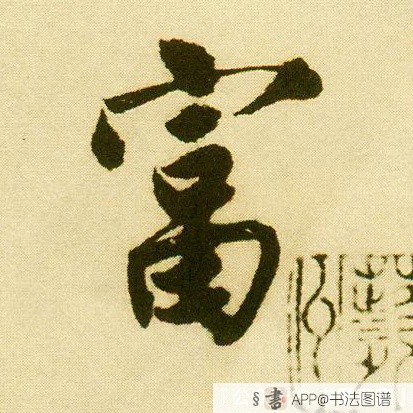 富
§書 APP@书法图谱